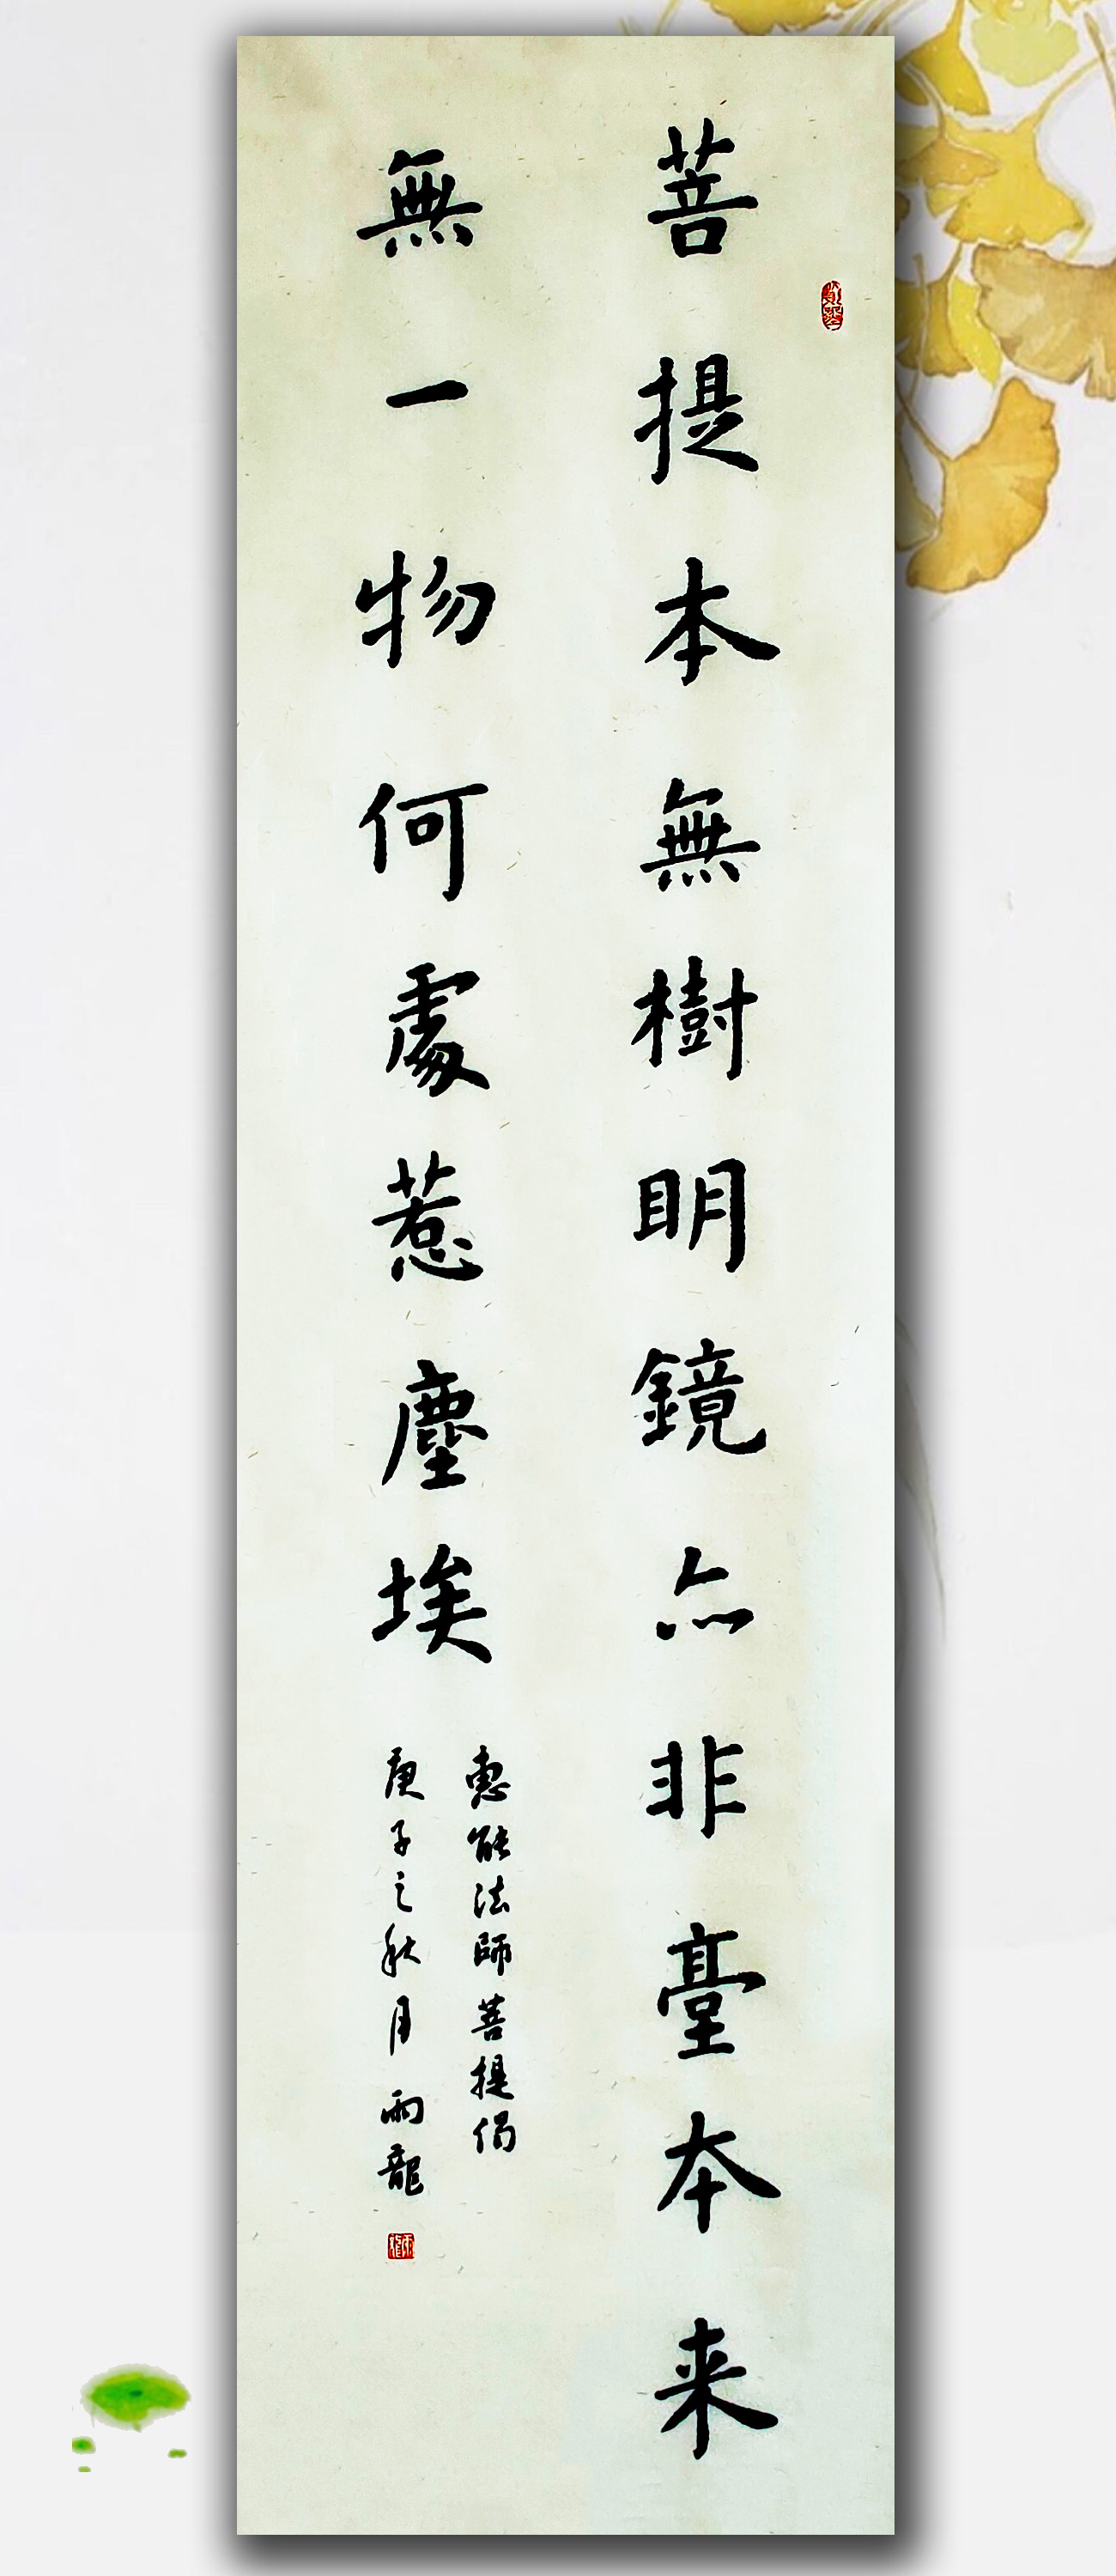 菩提本無樹明鏡亦非臺本来
無一物何處惹塵埃
惠能法師菩提偈
庚子之秋月雨龍